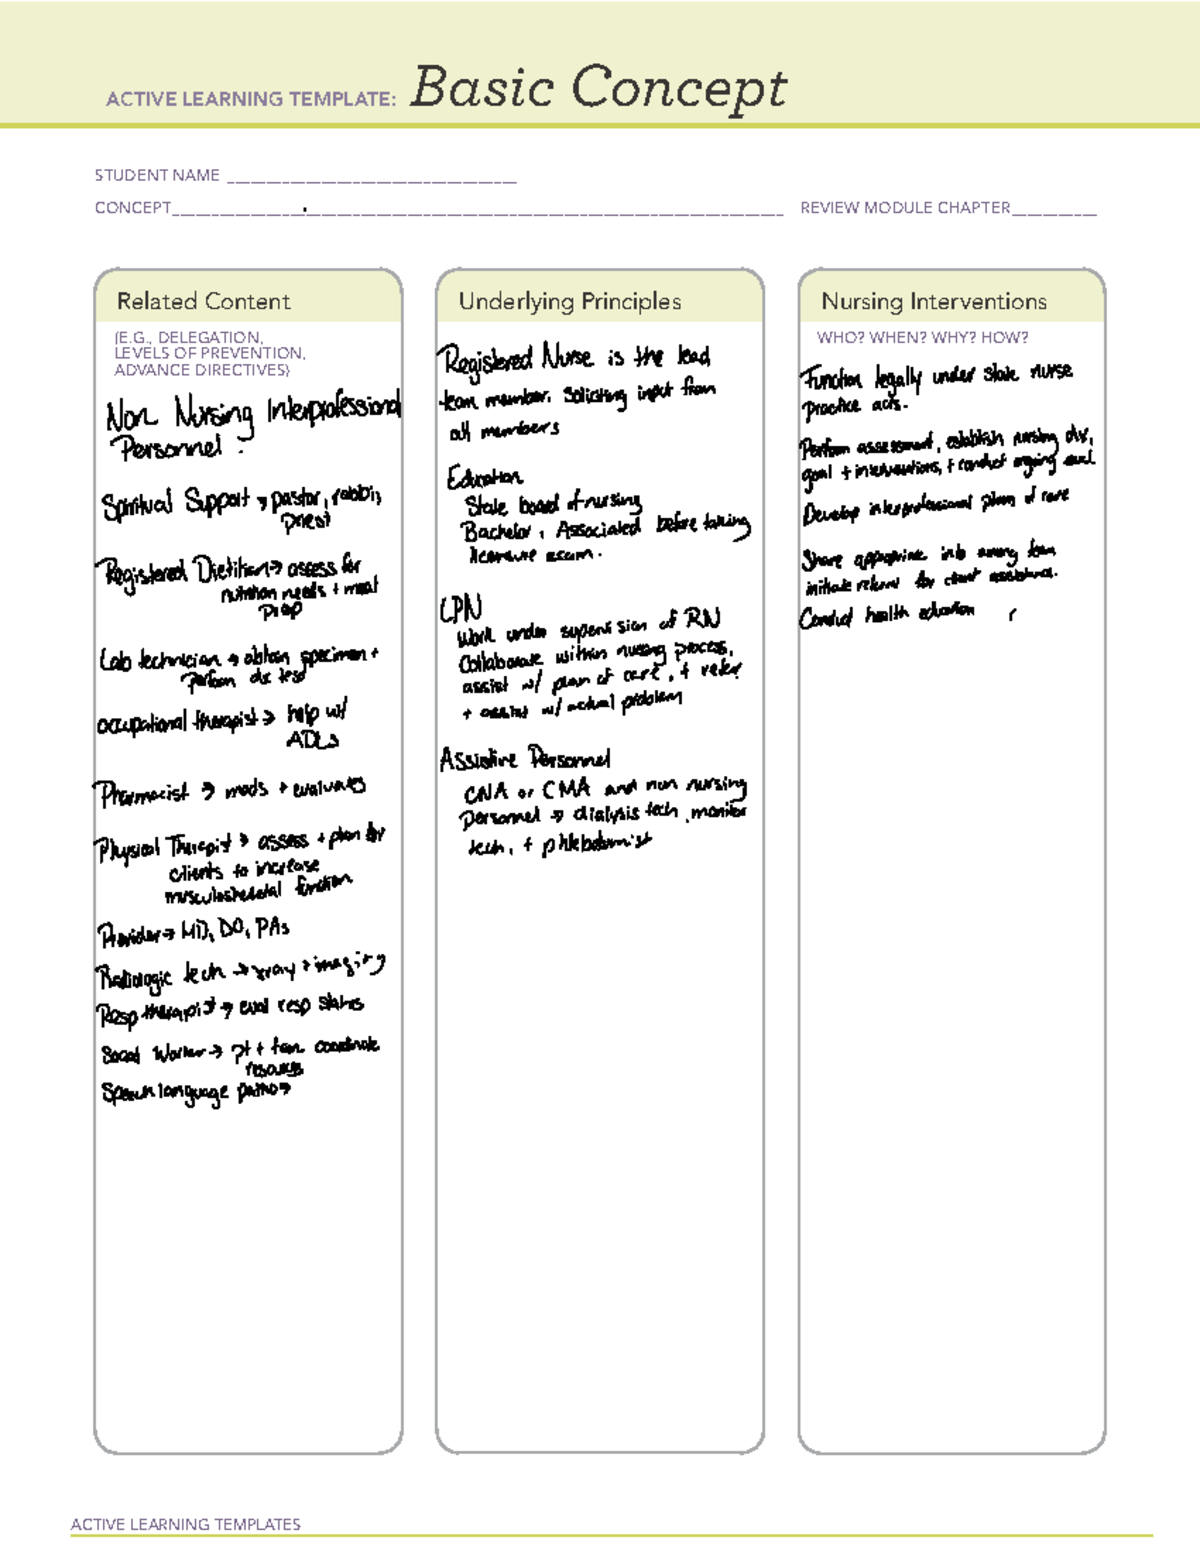 ACTIVE LEARNING TEMPLATE: Basic Concept
STUDENT NAME
CONCEPT
REVIEW MODULE CHAPTER
Related Content
(E.G., DELEGATION,
LEVELS OF PREVENTION,
ADVANCE DIRECTIVES)
Non Nursing Interprofessional
Personnel :
Spiritual Support → pastor, rabbi,
priest
Registered Dietitian → assess for
nutrition needs + meal
prep
Lab technician → obtain specimen +
perform dx test
occupational therapist → help w/
ADLs
Pharmacist → meds + evaluates
Physical Therapist → assess + plan for
clients to increase
musculoskeletal function
Provider → MD, DO, PAs
Radiologic tech → xray + imaging
Resp therapist → eval resp status
Social Worker → pt + fam coordinate
resources
Speech language patho →
Underlying Principles
Registered Nurse is the lead
team member. Soliciting input from
all members
Education
State board of nursing
Bachelor, Associated before taking
licensure exam.
LPN
Work under supervision of RN
Collaborate within nursing process,
assist w/ plan of care, + refer
+ assist w/ actual problem
Assistive Personnel
CNA or CMA and non nursing
personnel → dialysis tech, monitor
tech, + phlebotomist
Nursing Interventions
WHO? WHEN? WHY? HOW?
Function legally under state nurse
practice acts.
Perform assessment, establish nursing dx,
goal + interventions, + conduct ongoing eval.
Develop interprofessional plan of care
Share appropriate info among team
initiate referral for client assistance.
Conduct health education
ACTIVE LEARNING TEMPLATES